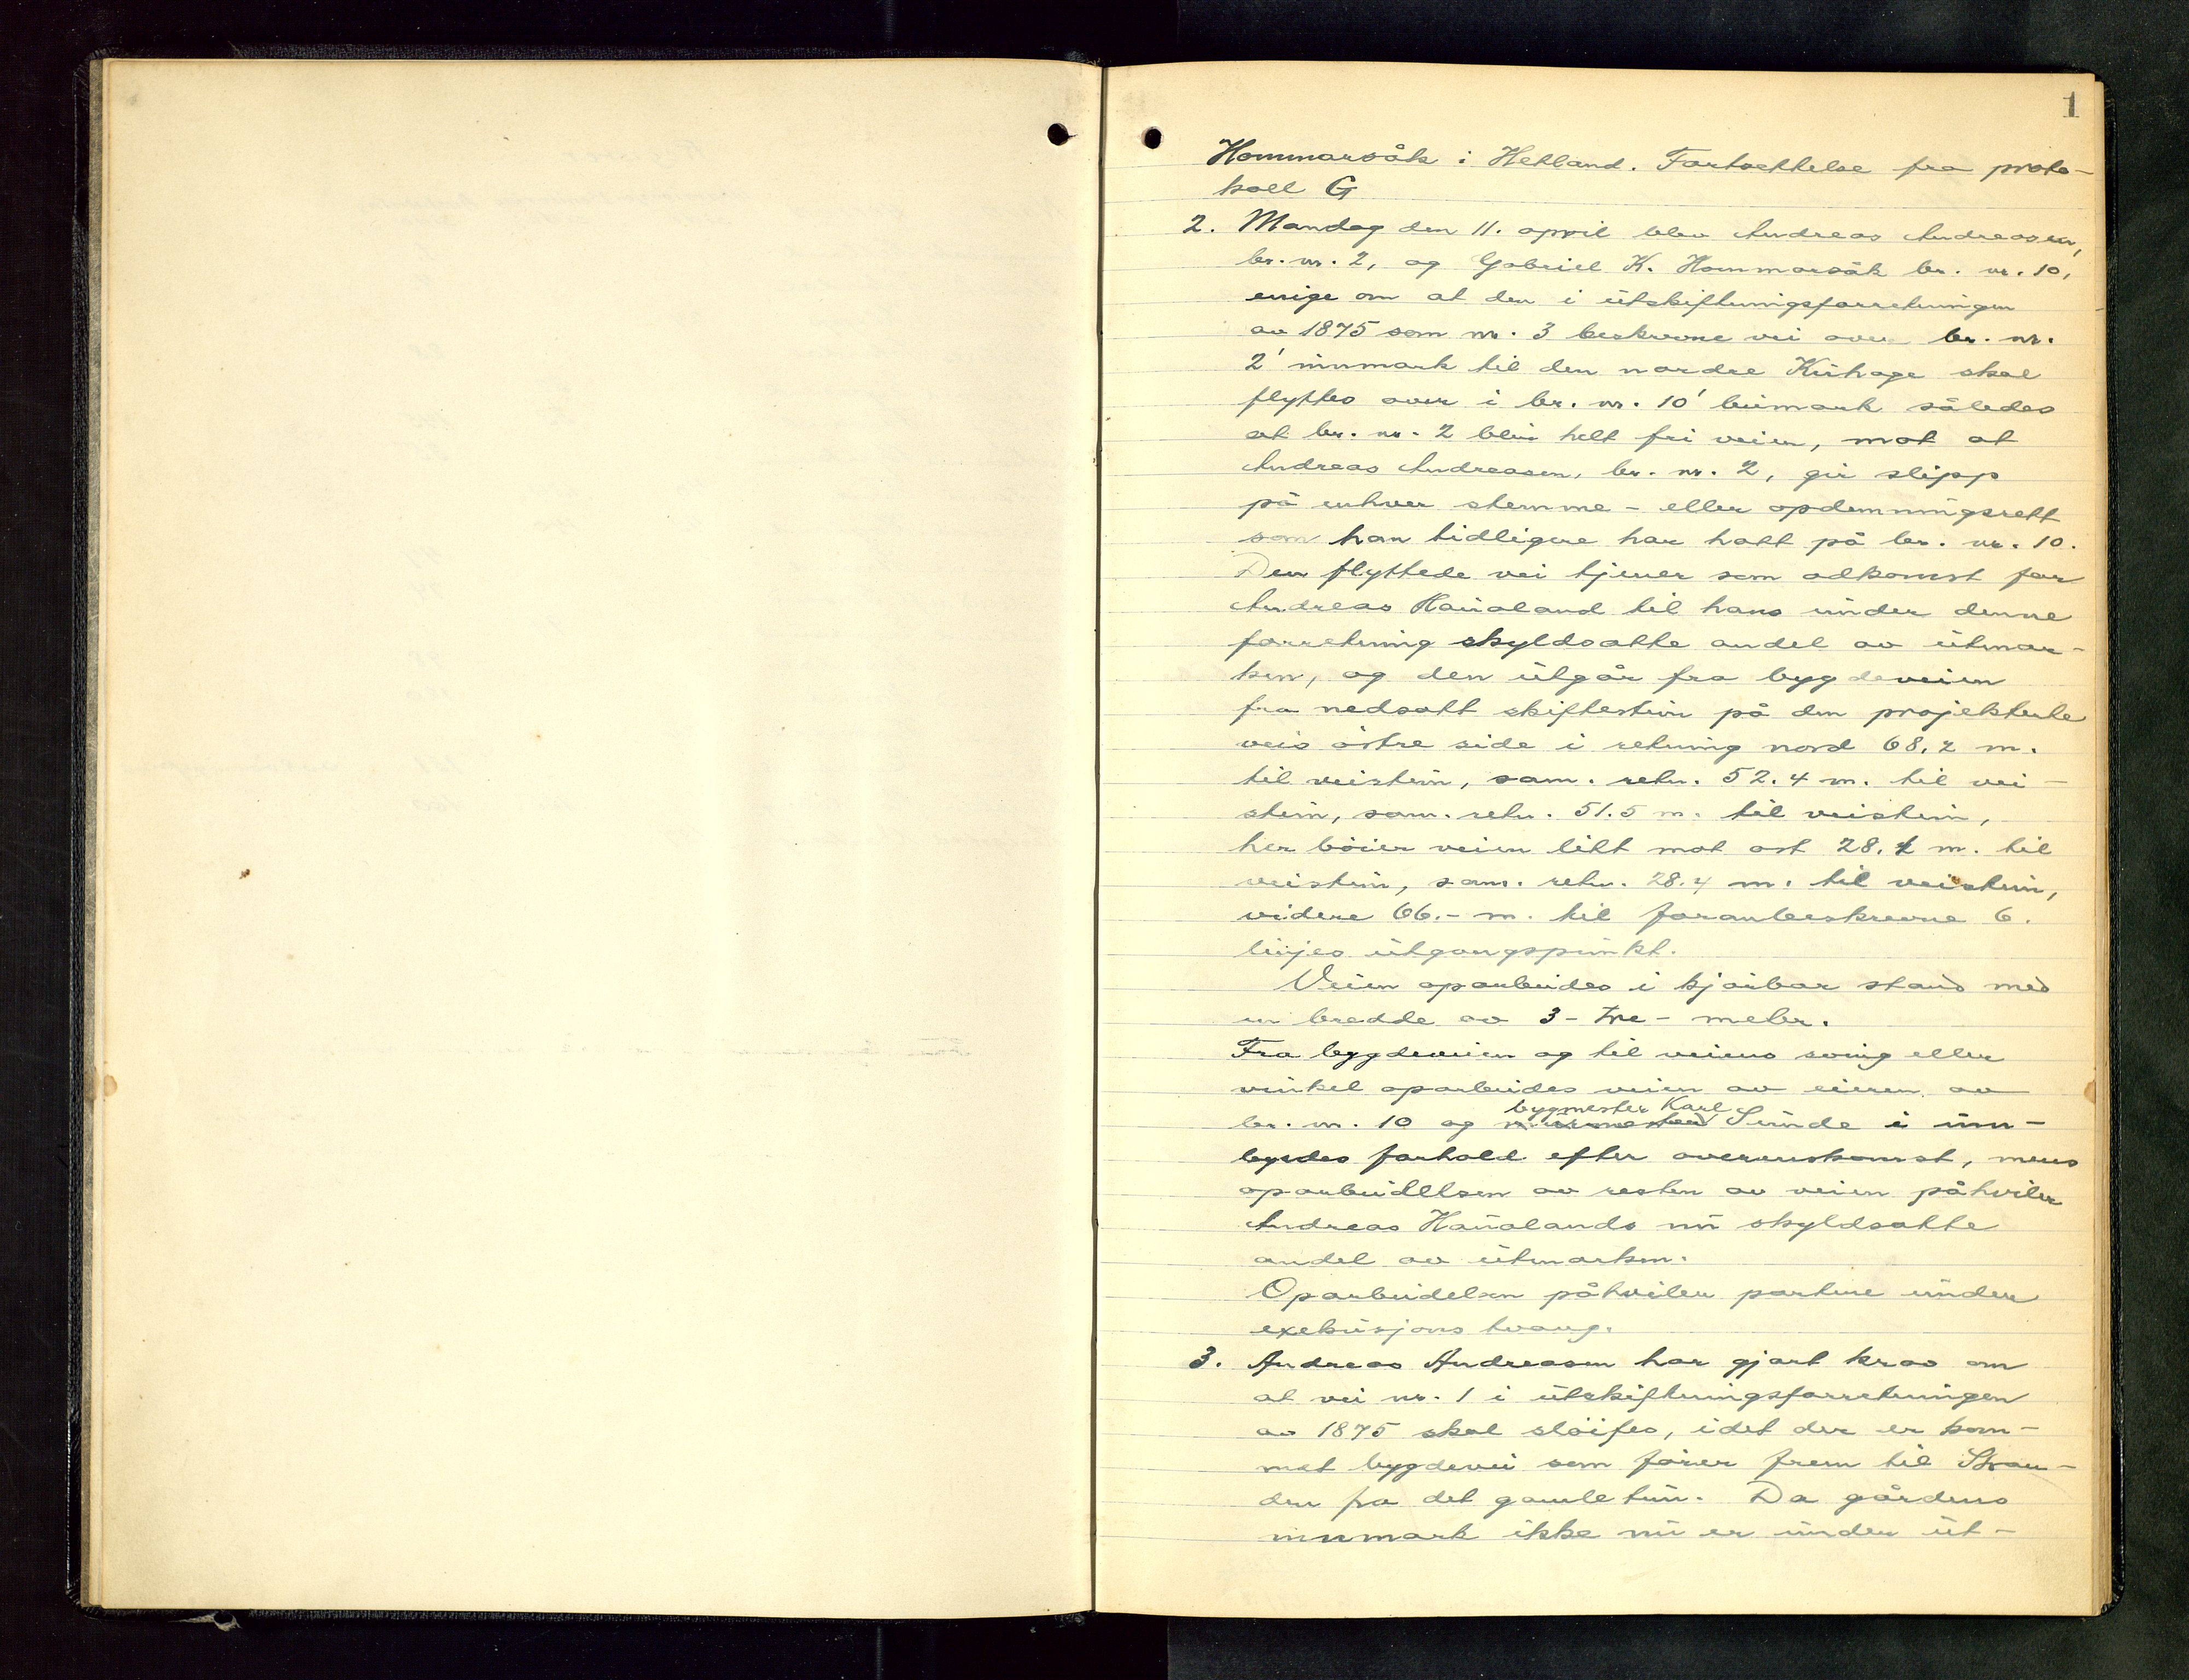 1
Hommarsåk i Hetland. Fortsettelse fra proto-
koll G
2. Mandag den 11. april blev Andreas Andreasen,
br. nr. 2, og Gabriel K. Hommarsåk br. nr. 10,
enige om at den i utskiftningsforretningen
av 1875 som nr. 3 beskrevne vei over br. nr.
2' innmark til den nordre Kuhage skal
flyttes over i br. nr. 10' bumark således
at br. nr. 2 blir helt fri veien, mot at
Andreas Andreasen, br. nr. 2, gir slipp
på enhver stemme- eller opdemningsrett
som han tidligere har hatt på br. nr. 10.
Den flyttede vei tjener som adkomst for
Andreas Haualand til hans under denne
forretning skyldsatte andel av utmar-
ken, og den utgår fra bygdeveien
fra nedsatt skiftestein på den projekterte
veis östre side i retning nord 68,2 m.
til veistein, sam. retn. 52.4 m. til vei-
stein, sam. retn. 51.5 m. til veistein,
her böier veien litt mot ost 28.4 m. til
veistein, sam. retn. 28.4 m. til veistein,
videre 66.- m. til foranbeskrevne 6.
linjes utgangspunkt.
Veien oparbeides i kjörbar stand med
en bredde av 3 - tre - meter.
Fra bygdeveien og til veiens sving eller
vinkel oparbeides veien av eieren av
bygmester Karl
br. nr. 10 og murmester Sunde i inn-
byrdes forhold efter overenskomst, mens
oparbeidelsen av resten av veien påhviler
Andreas Haualands nu skyldsatte
andel av utmarken.
Oparbeidelsen påhviler partene under
exekusjons tvang.
3. Andreas Andreasen har gjort krav om
at vei nr. 1 i utskiftningsforretningen
av 1875 skal slöifes, idet der er kom-
met bygdevei som förer frem til Stran-
den fra det gamle tun. Da gårdens
innmark ikke nu er under ut-